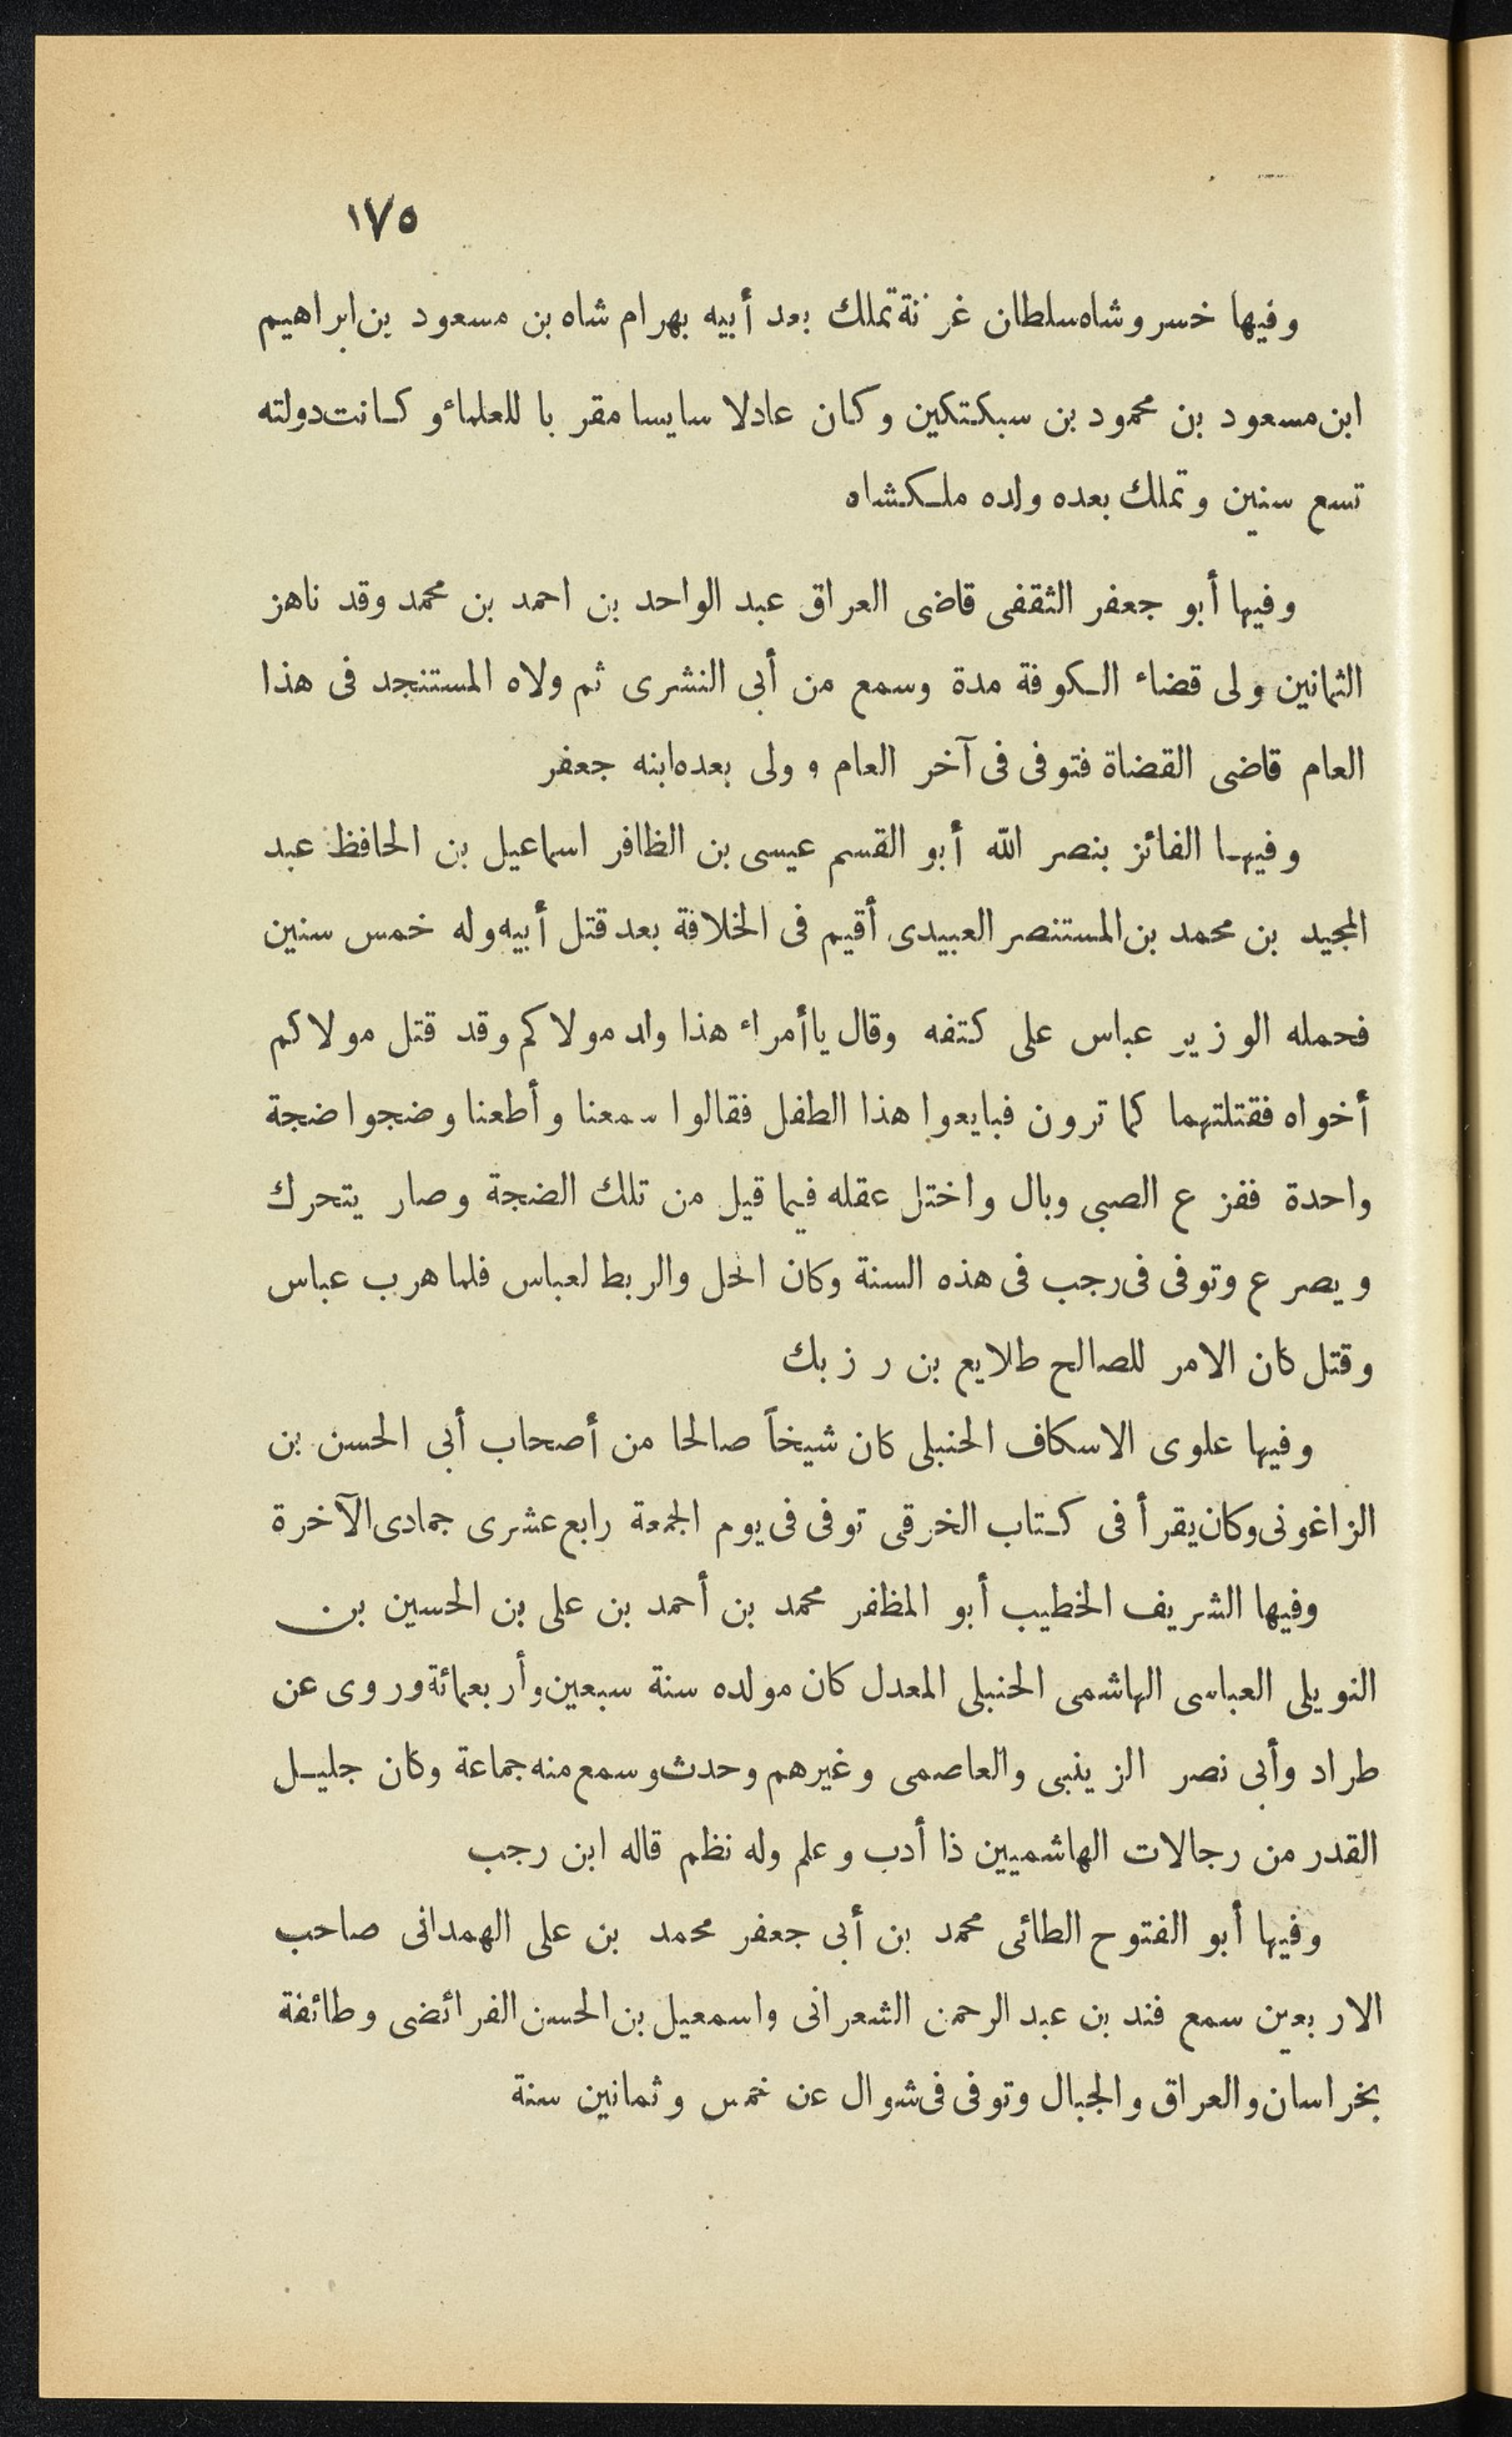 ١٧٥
وفيها خسروشاه سلطان غزنة تملك بعد أبيه بهرام شاه بن مسعود بن ابراهيم
ابن مسعود بن محمود بن سبكتكين وكان عادلا سايسا مقربا للعلماء وكانت دولته
تسع سنين وتملك بعده ولده ملكشاه
وفيها أبو جعفر الثقفى قاضى العراق عبد الواحد بن احمد بن محمد وقد ناهز
الثمانين ولى قضاء الكوفة مدة وسمع من أبى النشرى ثم ولاه المستنجد فى هذا
العام قاضى القضاة فتوفى فى آخر العام وولى بعده ابنه جعفر
وفيها الفائز بنصر الله أبو القسم عيسى بن الظافر اسماعيل بن الحافظ عبد
المجيد بن محمد بن المستنصر العبيدى أقيم فى الخلافة بعد قتل أبيه وله خمس سنين
فحمله الوزير عباس على كتفه وقال ياأمراء هذا ولد مولاكم وقد قتل مولاكم
أخواه فقتلتهما كما ترون فبايعوا هذا الطفل فقالوا سمعنا وأطعنا وضجوا ضجة
واحدة ففزع الصبى وبال واختل عقله فيما قيل من تلك الضجة وصار يتحرك
ويصرع وتوفى فى رجب فى هذه السنة وكان الحل والربط لعباس فلما هرب عباس
وقتل كان الامر للصالح طلايع بن رزبك
وفيها علوى الاسكاف الحنبلى كان شيخاً صالحا من أصحاب أبى الحسن بن
الزاغونى وكان يقرأ فى كتاب الخرقى توفى فى يوم الجمعة رابع عشرى جمادى الآخرة
وفيها الشريف الخطيب أبو المظفر محمد بن أحمد بن على بن الحسين بن
النويلى العباسى الهاشمى الحنبلى المعدل كان مولده سنة سبعين وأربعمائة وروى عن
طراد وأبى نصر الزينبى والعاصمى وغيرهم وحدث وسمع منه جماعة وكان جليل
القدر من رجالات الهاشميين ذا أدب وعلم وله نظم قاله ابن رجب
وفيها أبو الفتوح الطائى محمد بن أبى جعفر محمد بن على الهمدانى صاحب
الاربعين سمع فند بن عبد الرحمن الشعرانى واسمعيل بن الحسن الفرائضى وطائفة
بخراسان والعراق والجبال وتوفى فى شوال عن خمس وثمانين سنة